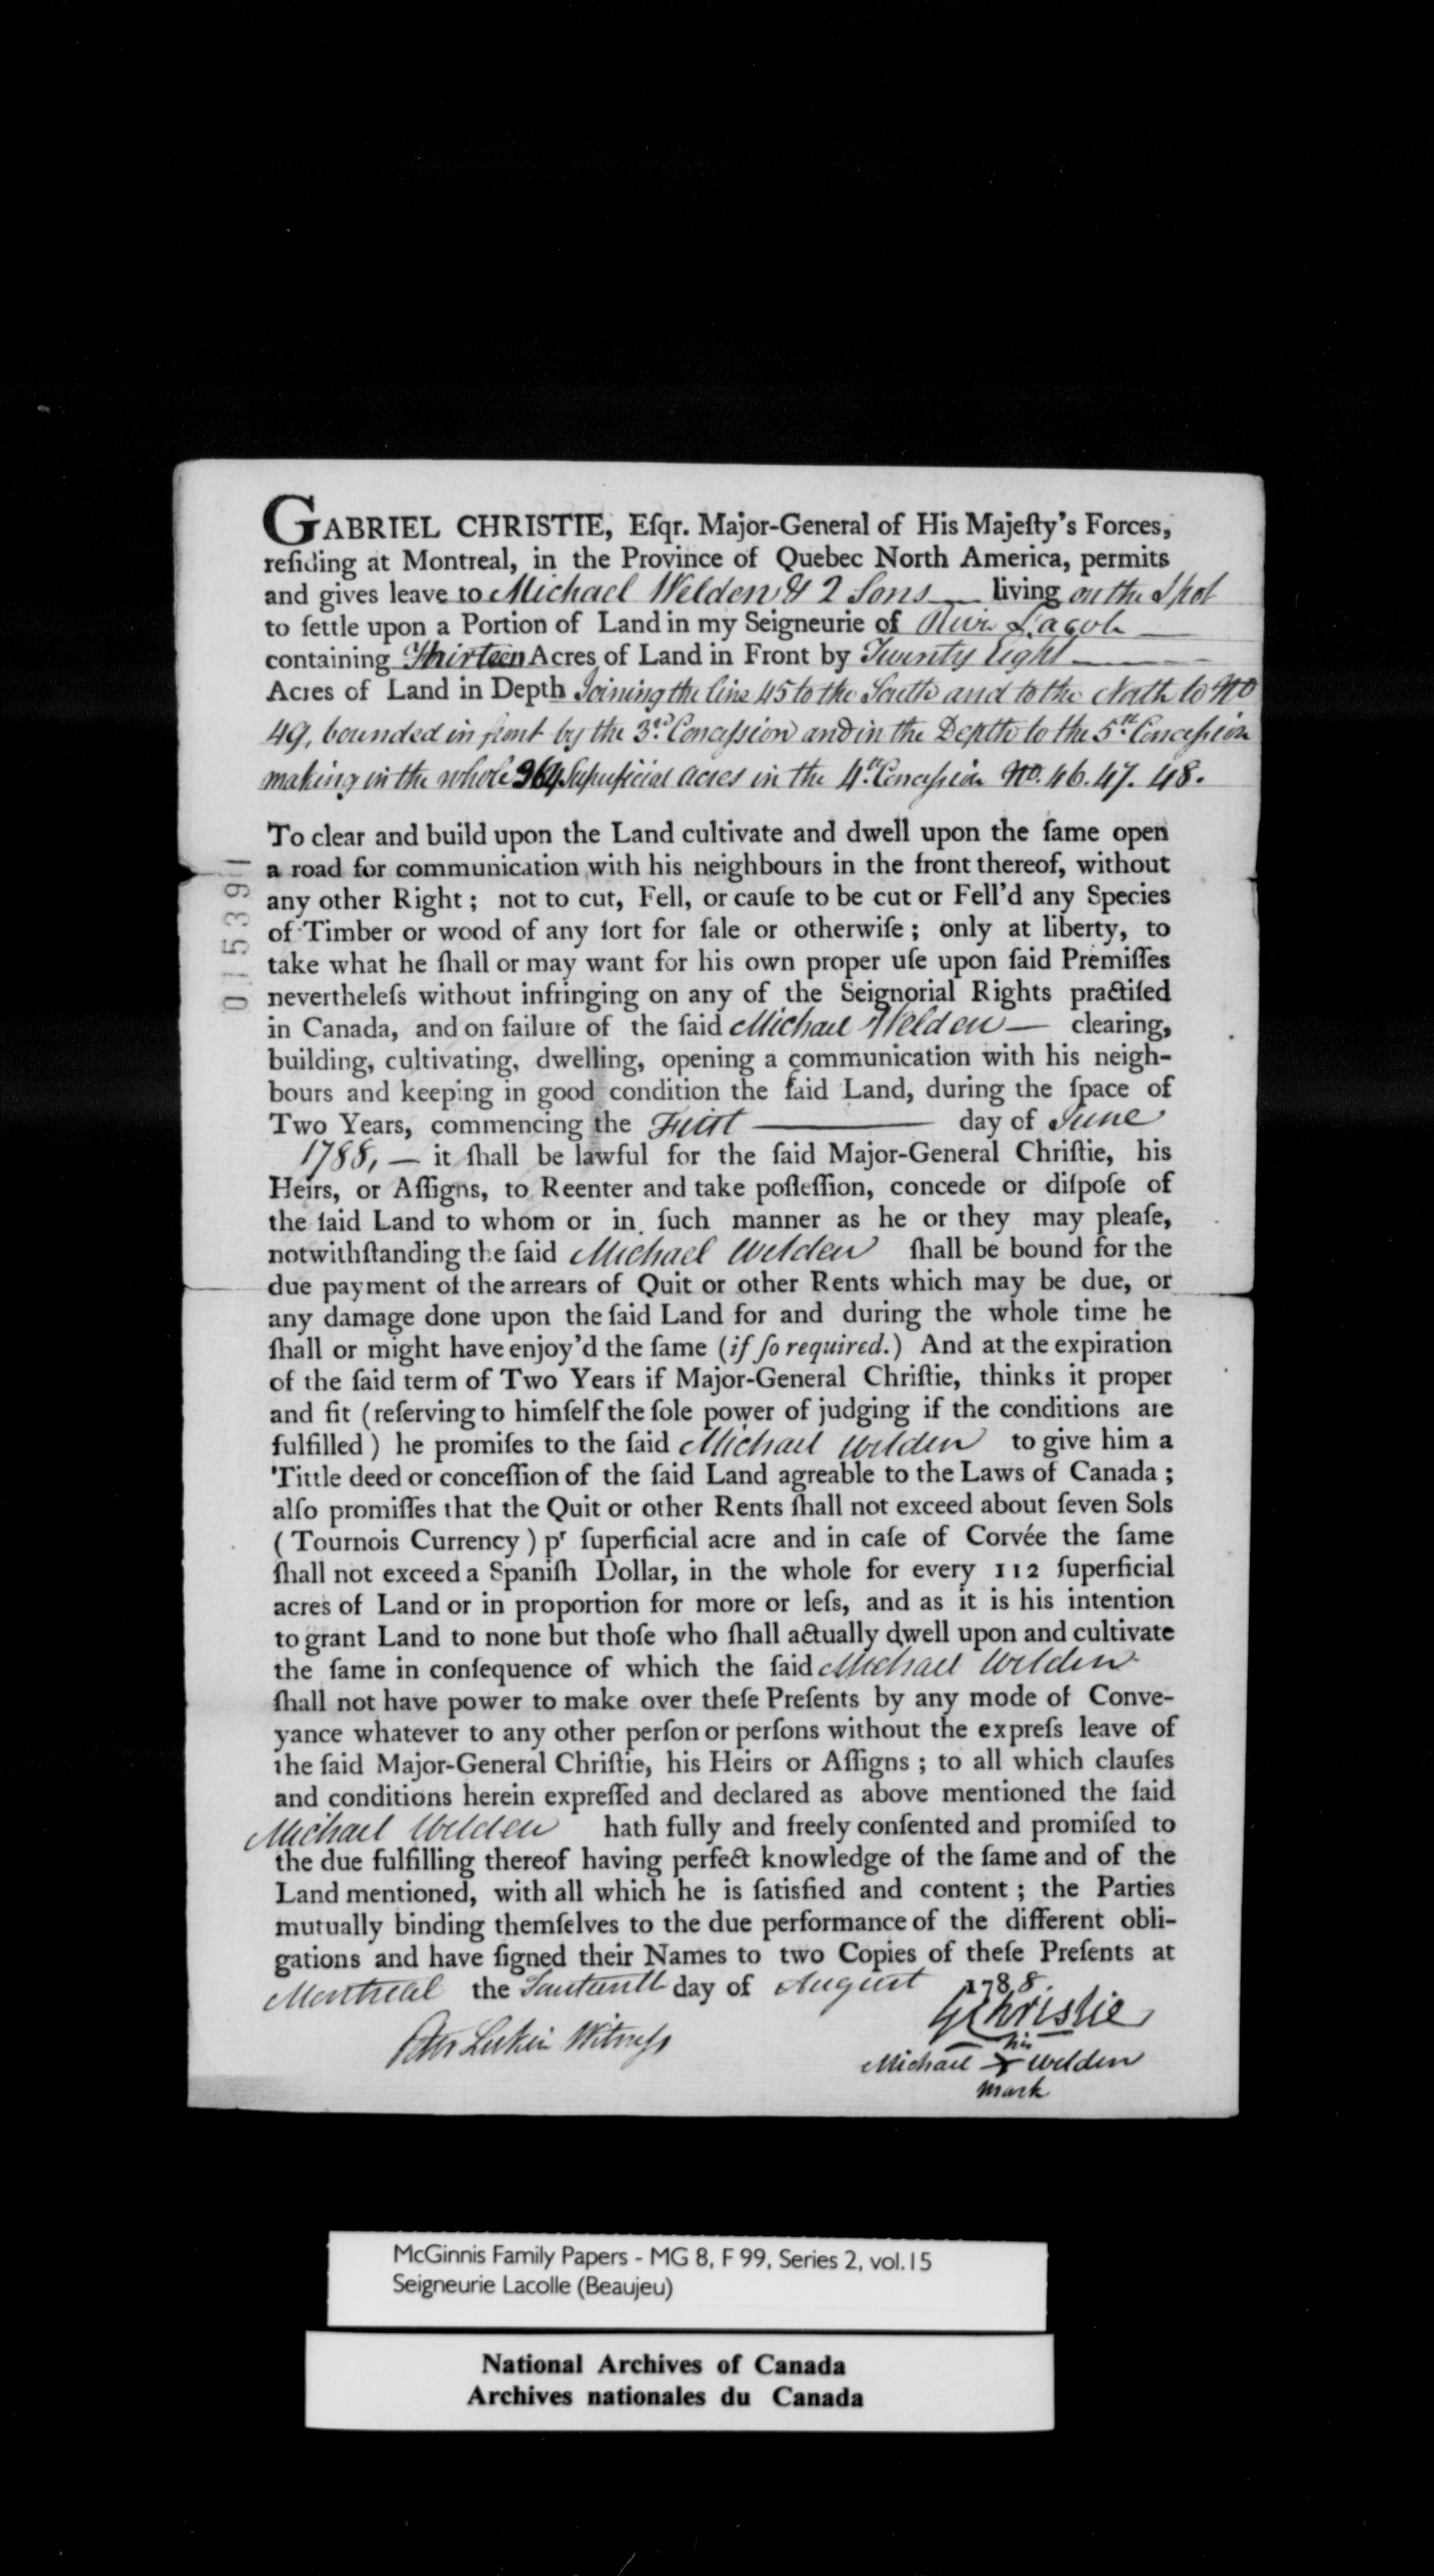 GABRIEL CHRISTIE, Eſqr. Major-General of His Majeſty's Forces,
reſiding at Montreal, in the Province of Quebec North America, permits
and gives leave to Michael Welden & 2 Sons living on the Spot
to ſettle upon a Portion of Land in my Seigneurie of River Lacole
containing Thirteen Acres of Land in Front by Twenty Eight
Acres of Land in Depth Joining the line 45 to the South and to the North to No
49, bounded in front by the 3rd Conceſsion and in the Depth to the 5th Conceſsion
making in the whole 364 Superficial acres in the 4th Conceſsion No. 46. 47. 48.
To clear and build upon the Land cultivate and dwell upon the ſame open
a road for communication with his neighbours in the front thereof, without
any other Right ; not to cut, Fell, or cauſe to be cut or Fell'd any Species
of Timber or wood of any ſort for ſale or otherwiſe ; only at liberty, to
take what he ſhall or may want for his own proper uſe upon ſaid Premiſſes
nevertheleſs without infringing on any of the Seignorial Rights practiſed
in Canada, and on failure of the ſaid Michael Welden — clearing,
building, cultivating, dwelling, opening a communication with his neigh-
bours and keeping in good condition the ſaid Land, during the ſpace of
Two Years, commencing the First day of June
1788, — it ſhall be lawful for the ſaid Major-General Chriſtie, his
Heirs, or Aſſigns, to Reenter and take poſſeſſion, concede or diſpoſe of
the ſaid Land to whom or in ſuch manner as he or they may pleaſe,
notwithſtanding the ſaid Michael Welden ſhall be bound for the
due payment of the arrears of Quit or other Rents which may be due, or
any damage done upon the ſaid Land for and during the whole time he
ſhall or might have enjoy'd the ſame (if ſo required.) And at the expiration
of the ſaid term of Two Years if Major-General Chriſtie, thinks it proper
and fit (reſerving to himſelf the ſole power of judging if the conditions are
fulfilled ) he promiſes to the ſaid Michael Welden to give him a
Tittle deed or conceſſion of the ſaid Land agreable to the Laws of Canada ;
alſo promiſſes that the Quit or other Rents ſhall not exceed about ſeven Sols
( Tournois Currency ) pr ſuperficial acre and in caſe of Corvée the ſame
ſhall not exceed a Spaniſh Dollar, in the whole for every 112 ſuperficial
acres of Land or in proportion for more or leſs, and as it is his intention
to grant Land to none but thoſe who ſhall actually dwell upon and cultivate
the ſame in conſequence of which the ſaid Michael Welden
ſhall not have power to make over theſe Preſents by any mode of Conve-
yance whatever to any other perſon or perſons without the expreſs leave of
the ſaid Major-General Chriſtie, his Heirs or Aſſigns ; to all which clauſes
and conditions herein expreſſed and declared as above mentioned the ſaid
Michael Welden hath fully and freely conſented and promiſed to
the due fulfilling thereof having perfect knowledge of the ſame and of the
Land mentioned, with all which he is ſatisfied and content ; the Parties
mutually binding themſelves to the due performance of the different obli-
gations and have ſigned their Names to two Copies of theſe Preſents at
Montreal the day of August 1788.
GChristie
Peter Lukin Witneſs
his
Michael X Welden
mark
015391
McGinnis Family Papers - MG 8, F 99, Series 2, vol.15
Seigneurie Lacolle (Beaujeu)
National Archives of Canada
Archives nationales du Canada